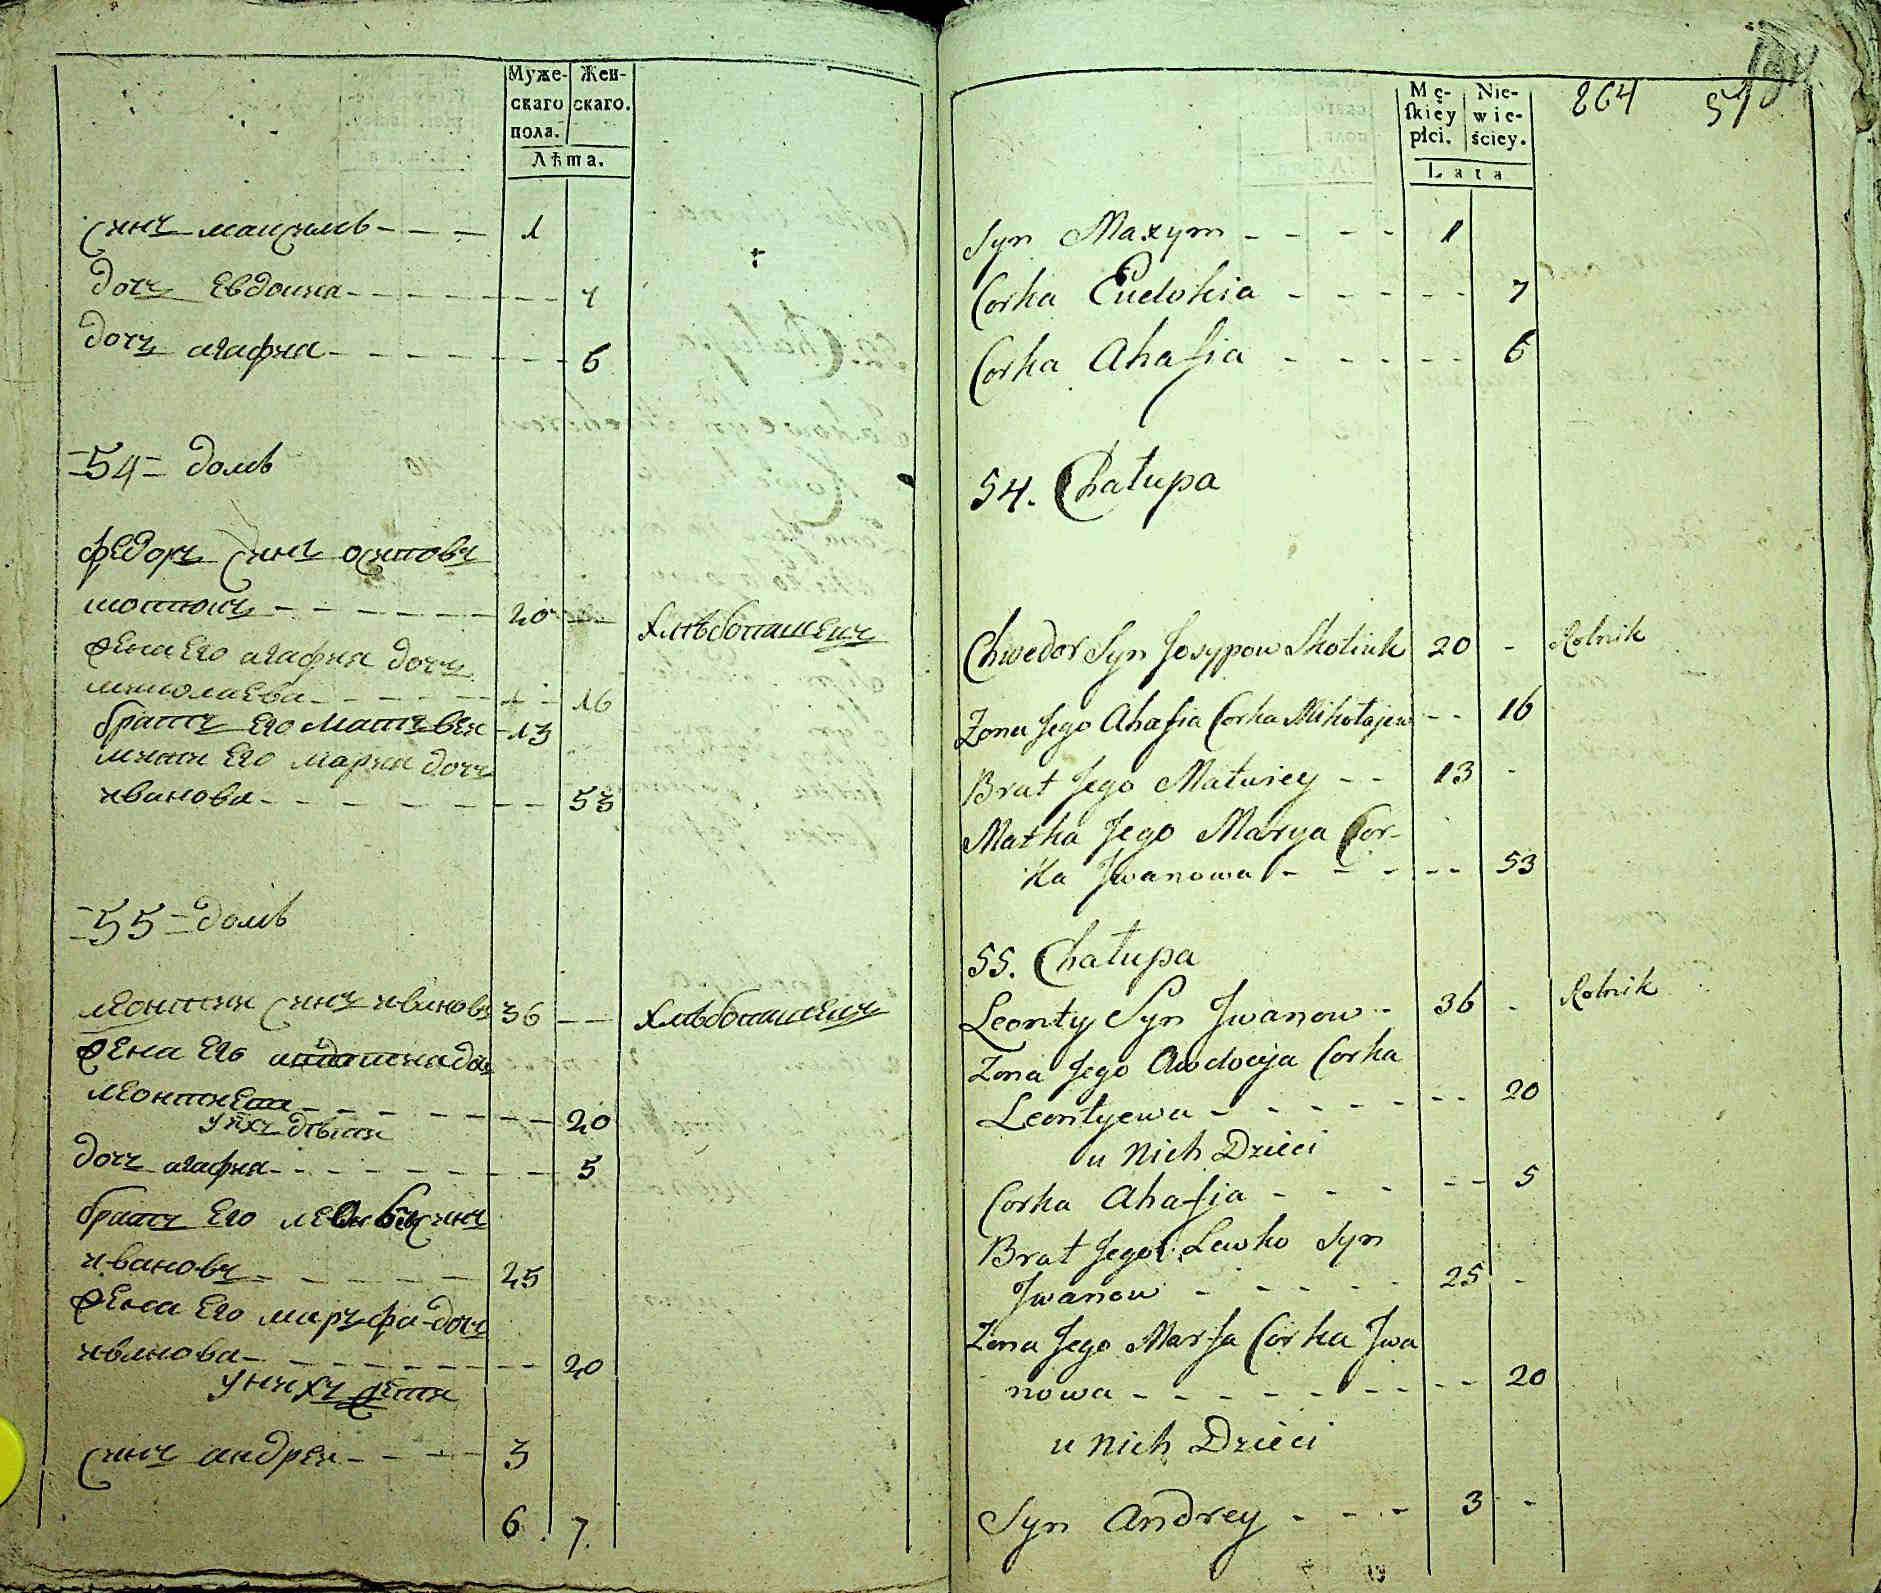 Муже-
скаго
пола.
Жен-
скаго.
Лѣта.
синъ максимъ - - - - 1
дочъ Евдокия - - - - 7
дочъ агафия - - - - 6
54 домъ
федоръ синъ осиповъ
- - - - 20 - - хлѣбопашецъ
жена Его агафия дочъ
миколаева - - - - 16
братъ Его матъвеи - 13
мати Его мария дочъ
иванова - - - - 53
55 домъ
леонтии синъ ивановъ 36 - - хлѣбопашецъ
жена Его
леонтиева - - - - 20
у них дѣти
дочъ агафия - - - - 5
братъ Его синъ
ивановъ - - - - 25
жена Его маръфа дочъ
иванова - - - - 20
у нихъ дети
синъ андреи - - - - 3
6 7.
Mę-
ſkiéy
płci.
Nie-
wie-
ściey.
Lata
264 57
Syn Maxym - - - - 1
Corka Eudokia - - - - 7
Corka Ahafia - - - - 6
54. Chałupa
Chwedor Syn Josypow Skotiuk 20 - Rolnik
Zona Jego Ahafia Corka Mikołajew - - 16
Brat Jego Matwiey - - 13 -
Matka Jego Marya Cor-
ka Jwanowa - - - - 53
55. Chałupa
Leonty Syn Jwanow - 36 - Rolnik
Zona Jego Awdocja Corka
Leontyewa - - - - 20
u nich Dzieci
Corka Ahafia - - - - 5
Brat Jego Lewko Syn
Jwanow - - - - 25 -
Zona Jego Marfa Corka Jwa
nowa - - - - 20
u nich Dzieci
Syn Andrey - - - 3 -